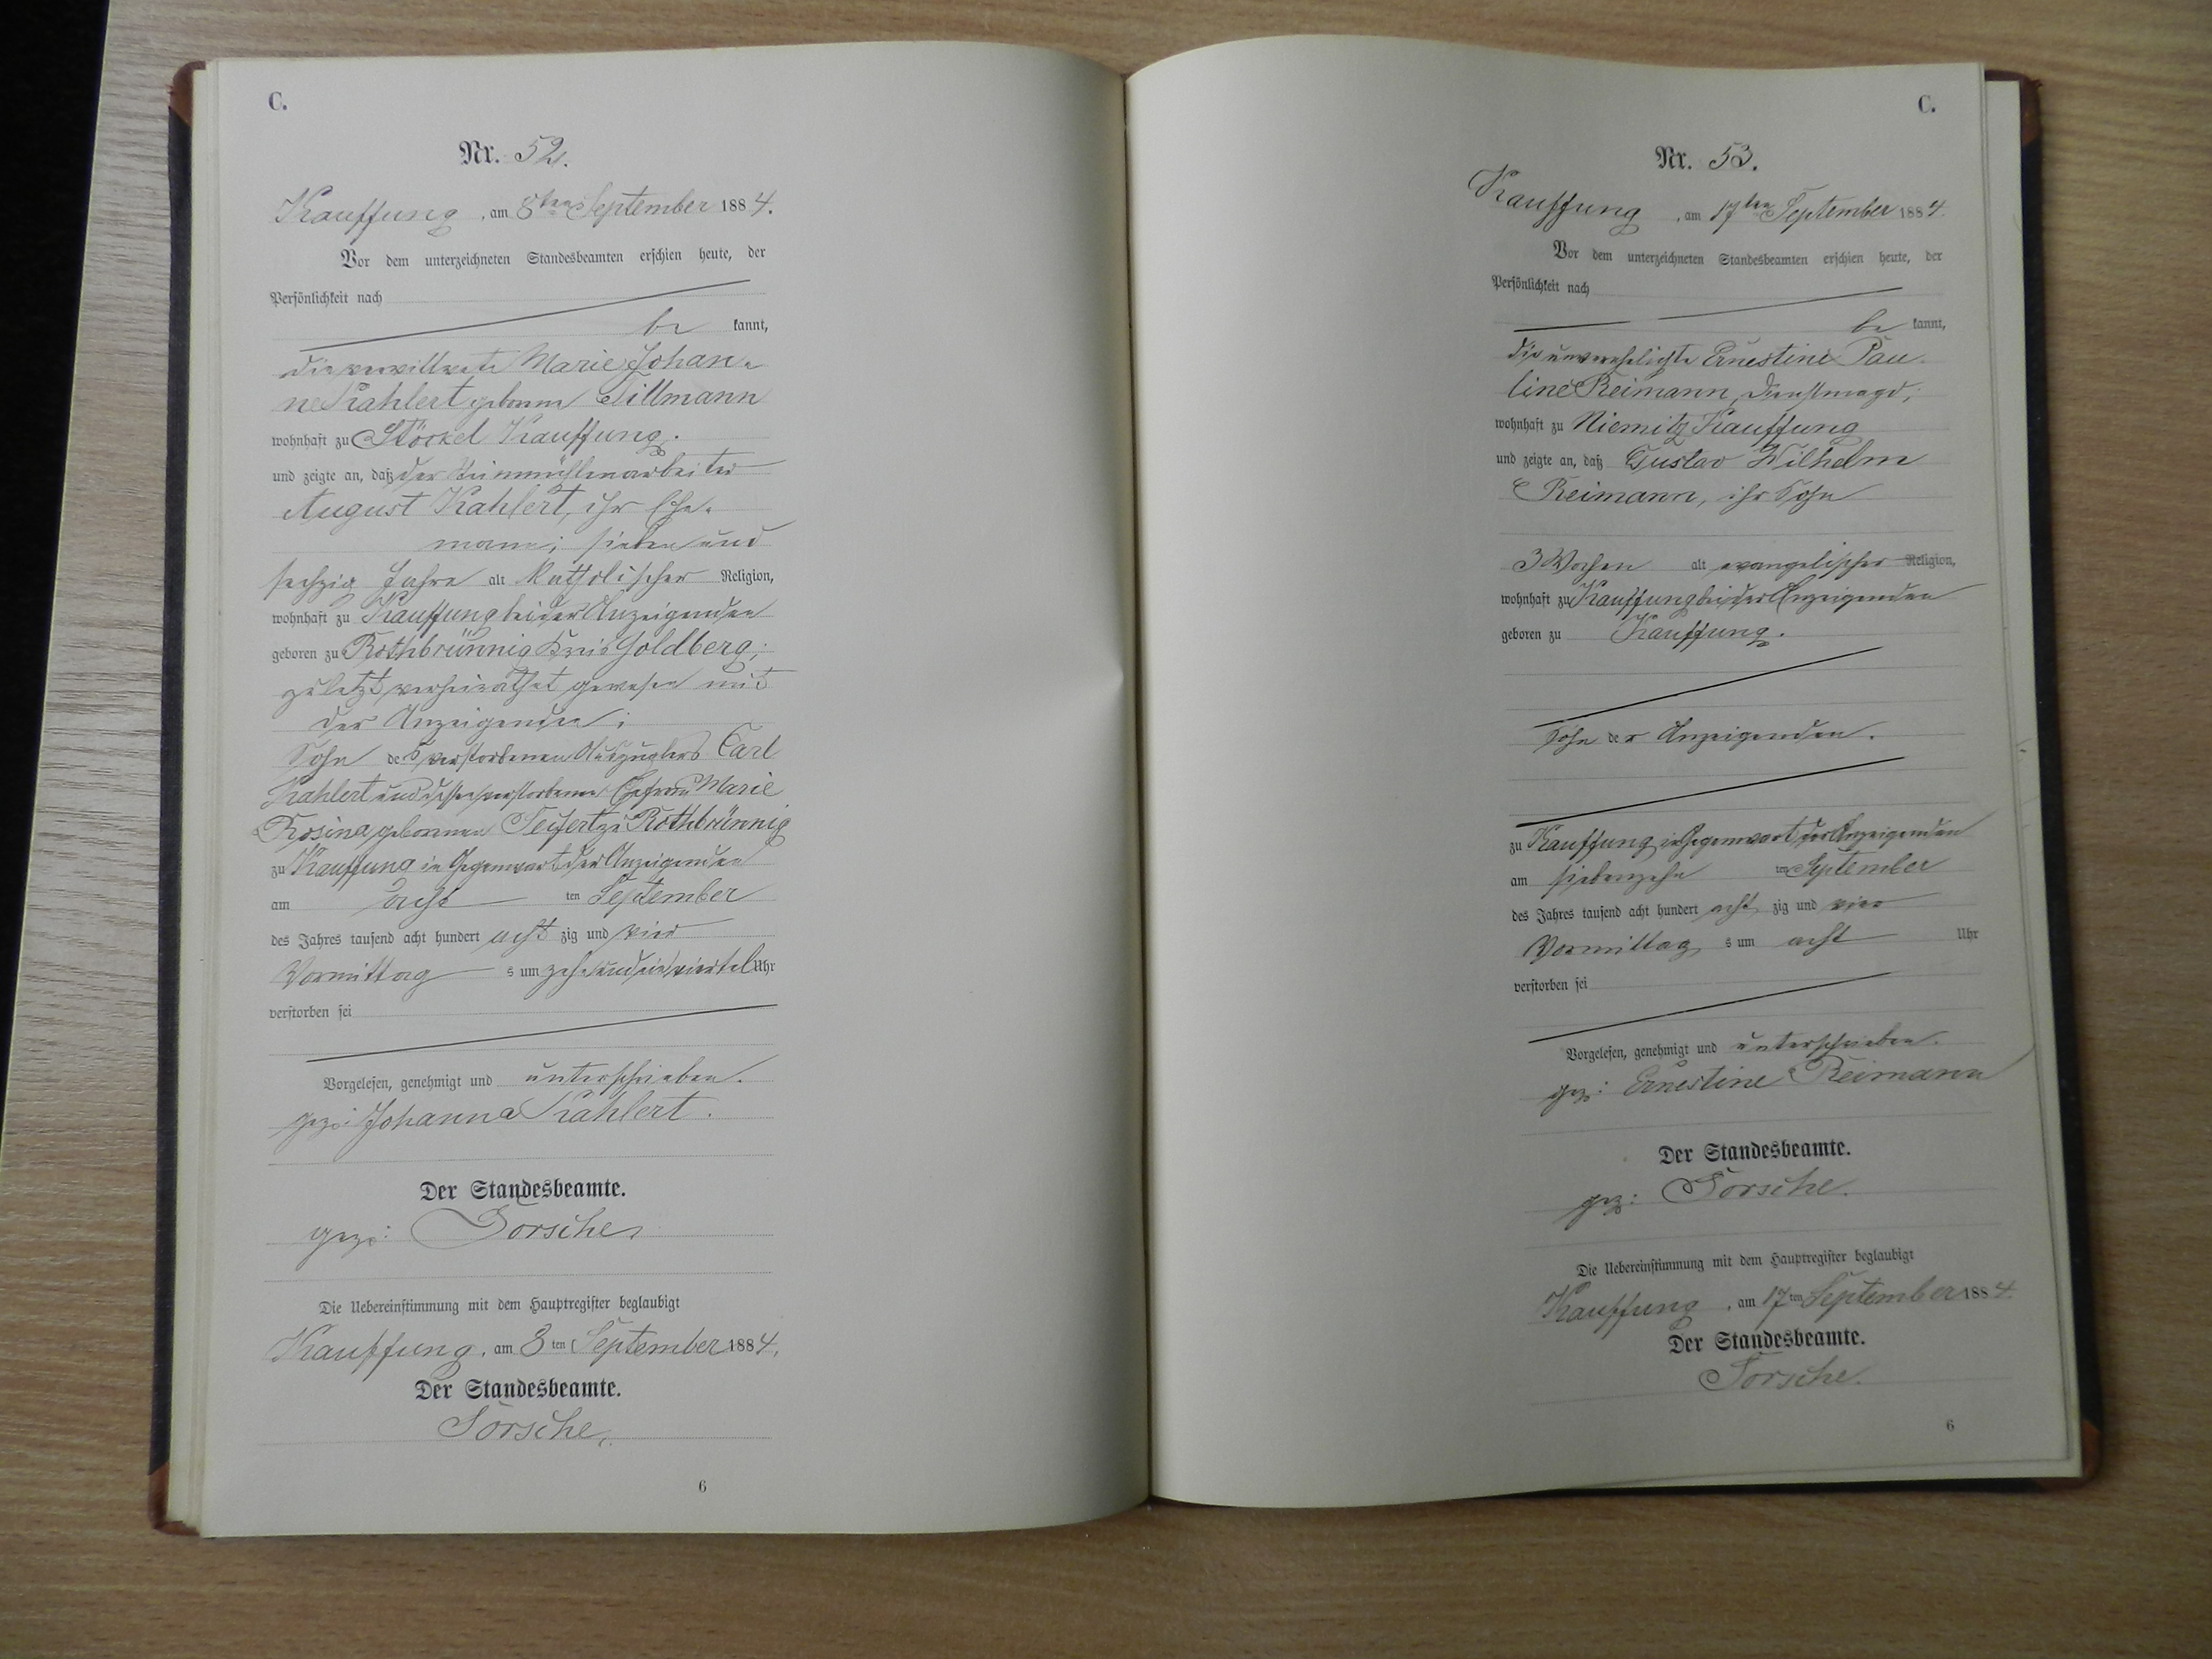 C.
Nr. 52.
Kauffung, am 8ten September 1884.
Vor dem unterzeichneten Standesbeamten erschien heute, der
Persönlichkeit nach
be kannt,
die verwittwete Marie Johan-
ne Kahlert geborne Tillmann
wohnhaft zu Stöckel Kauffung.
und zeigte an, daß der
August Kahlert, ihr Ehe-
mann; sieben und
sechzig Jahre alt katholischer Religion,
wohnhaft zu Kauffung bei der Anzeigenden
geboren zu Rothbrünnig Kreis Goldberg;
zuletzt verheirathet gewesen mit
der Anzeigenden;
Sohn des verstorbenen Auszüglers Carl
Kahlert und dessen verstorbenen Ehefrau Marie
Rosina geborenen Seifert zu Rothbrünnig
zu Kauffung in Gegenwart der Anzeigenden
am acht ten September
des Jahres tausend acht hundert acht zig und vier
Vormittag s um zehn und ein viertel Uhr
verstorben sei
Vorgelesen, genehmigt und unterschrieben.
gez: Johanna Kahlert.
Der Standesbeamte.
gez: Torsche.
Die Uebereinstimmung mit dem Hauptregister beglaubigt
Kauffung, am 8ten September 1884.
Der Standesbeamte.
Torsche.
6
C.
Nr. 53.
Kauffung, am 17ten September 1884.
Vor dem unterzeichneten Standesbeamten erschien heute, der
Persönlichkeit nach
be kannt,
die unverehelichte Ernestine Pau-
line Reimann, Dienstmagd,
wohnhaft zu Niemitz Kauffung
und zeigte an, daß Gustav Wilhelm
Reimann, ihr Sohn
3 Wochen alt evangelischer Religion,
wohnhaft zu Kauffung bei der Anzeigenden
geboren zu Kauffung.
Sohn der Anzeigenden.
zu Kauffung in Gegenwart der Anzeigenden
am siebenzehn ten September
des Jahres tausend acht hundert acht zig und vier
Vormittag s um acht Uhr
verstorben sei
Vorgelesen, genehmigt und unterschrieben.
gez: Ernestine Reimann
Der Standesbeamte.
gez: Torsche.
Die Uebereinstimmung mit dem Hauptregister beglaubigt
Kauffung, am 17ten September 1884.
Der Standesbeamte.
Torsche.
6